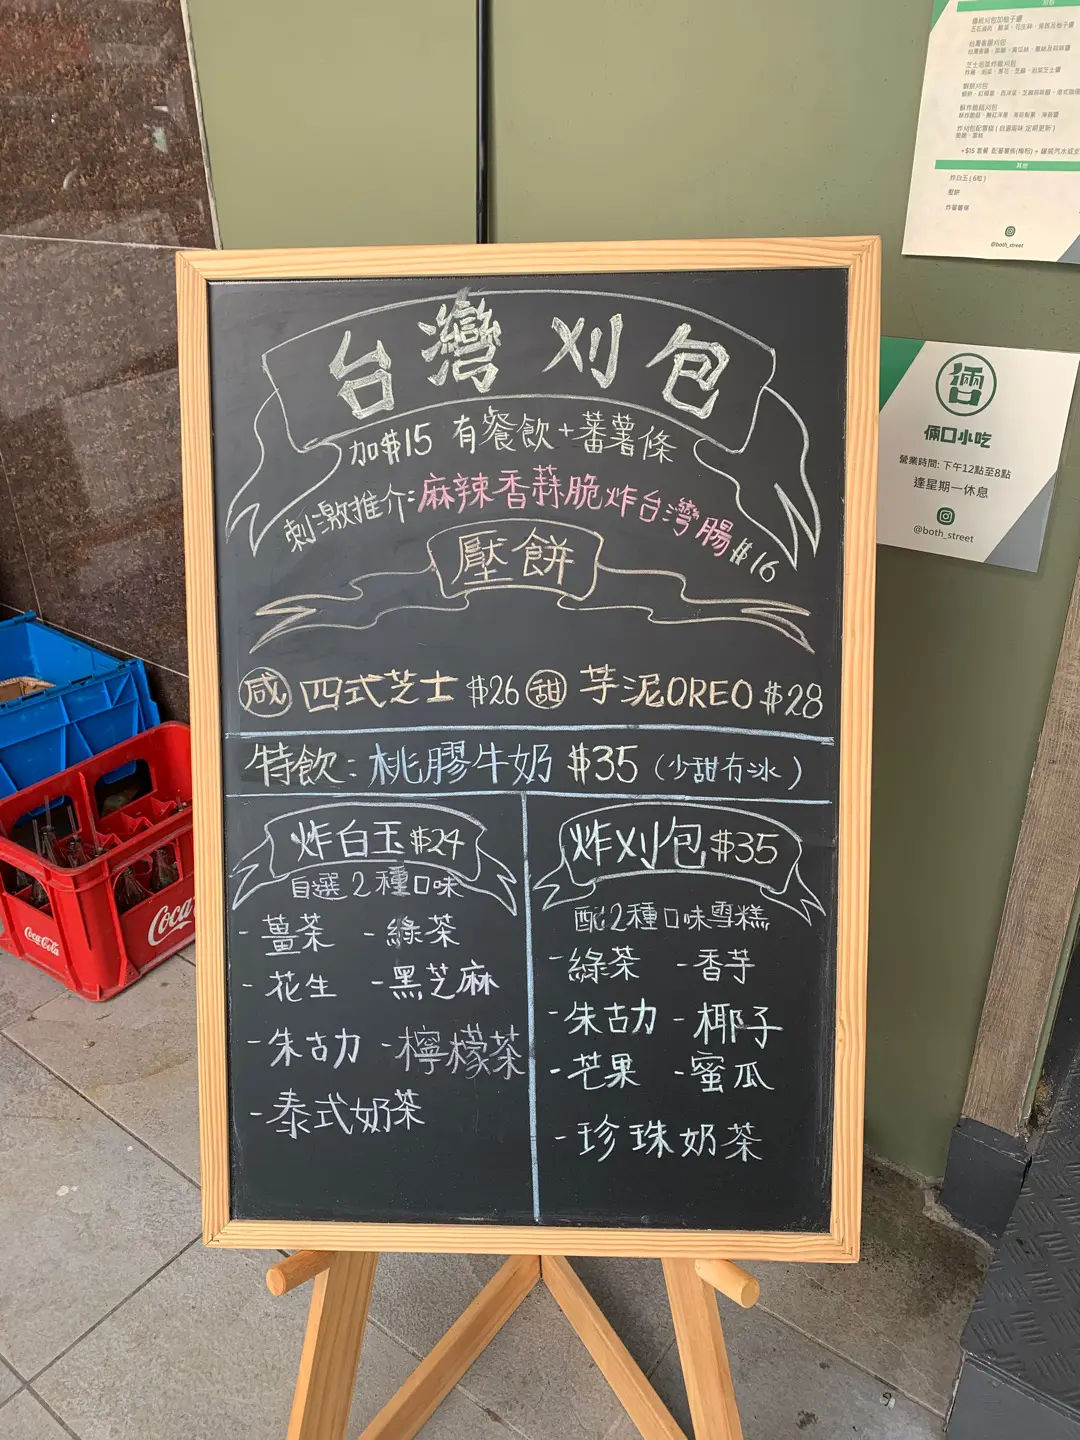 台灣刈包
加$15 有餐飲+蕃薯條
刺激推介:麻辣香蒜脆炸台灣腸 $16
壓餅
咸 四式芝士 $26 甜 芋泥OREO $28
特飲: 桃膠牛奶 $35 (少甜冇冰)
炸白玉 $24
自選2種口味
- 薑茶 - 綠茶
- 花生 - 黑芝麻
- 朱古力 - 檸檬茶
- 泰式奶茶
炸刈包 $35
配2種口味雪糕
- 綠茶 - 香芋
- 朱古力 - 椰子
- 芒果 - 蜜瓜
- 珍珠奶茶
倆口小吃
營業時間: 下午12點至8點
逢星期一休息
@both_street
炸刈包配雪糕 ( 自選兩味 定期更新 )
+$15 套餐
其他
炸白玉 ( 6粒 )
壓餅
炸蕃薯條
@both_street
Coca-Cola
Coca